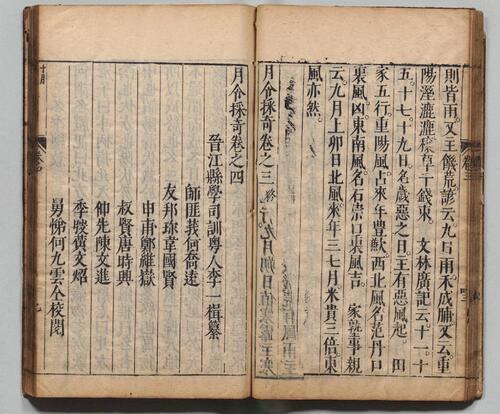 則皆雨又王饑荒諺云九月雨未成脯又云重
陽溼漉漉穰草千錢束　文林廣記云十一十
五十七十九日名歲惡之日主有惡風起　田
家五行重陽風占來年豊歉西北風名范丹口
裏風凶東南風名石崇口裏風吉　家塾事親
云九月上卯日北風來年三七月米貴三倍東
風亦然
月令採奇卷之三終
月令採奇卷之四
晉江縣學司訓粵人李一楫纂
師匪莪何喬遠
友邦琢韋國賢
申甫鄭維嶽
叔賢唐時興
仲先陳文進
季駿黃文炤
男悌何九雲仝校閱